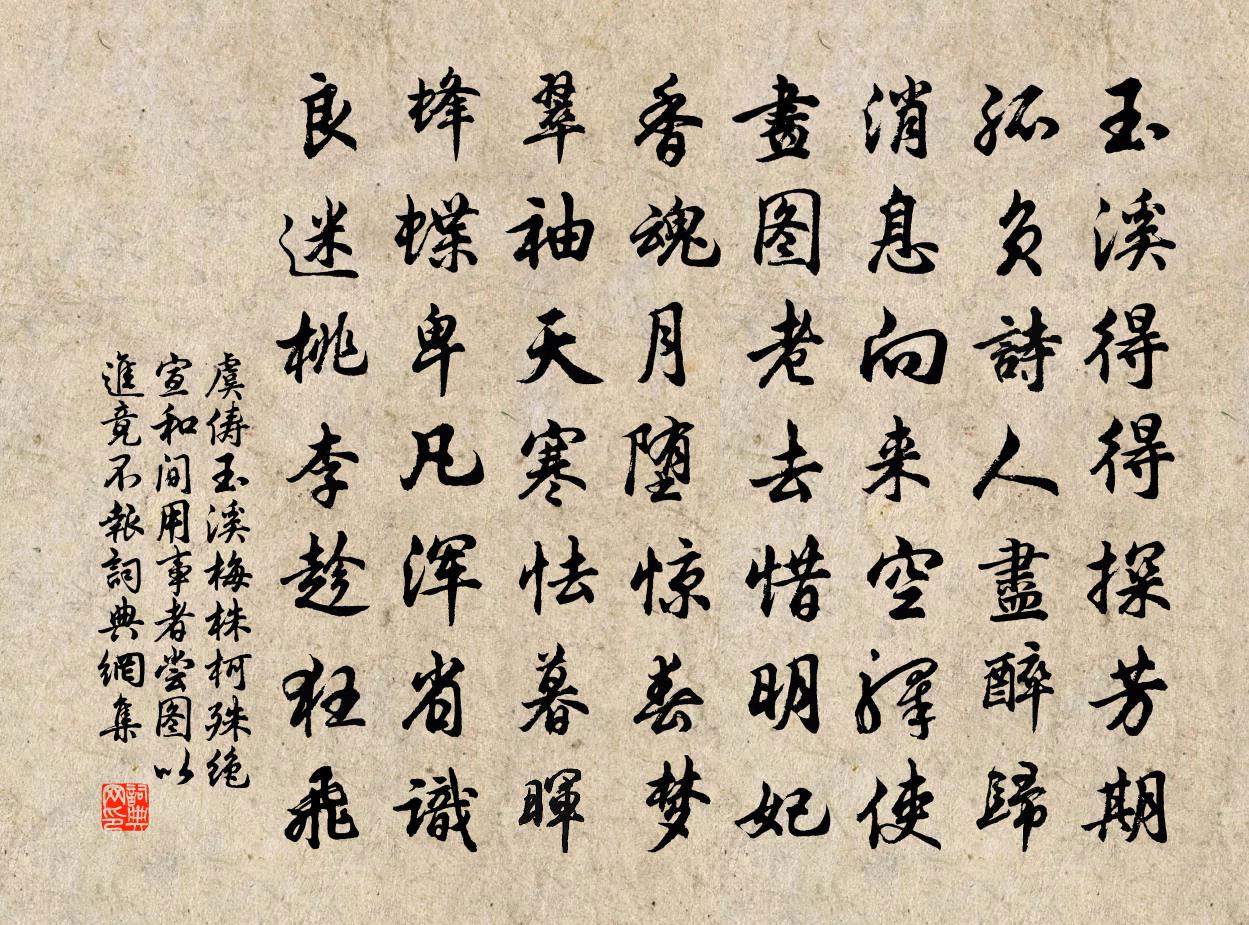 玉溪得得探芳期
孤负詩人盡醉歸
消息向来空驛使
畫图老去惜明妃
香魂月堕惊春梦
翠袖天寒怯暮暉
蜂蝶卑凡浑省識
良迷桃李趁狂飛
虞俦玉溪梅株柯殊绝
宣和间用事者尝图以
進竟不報詞典網集
詞典
网印